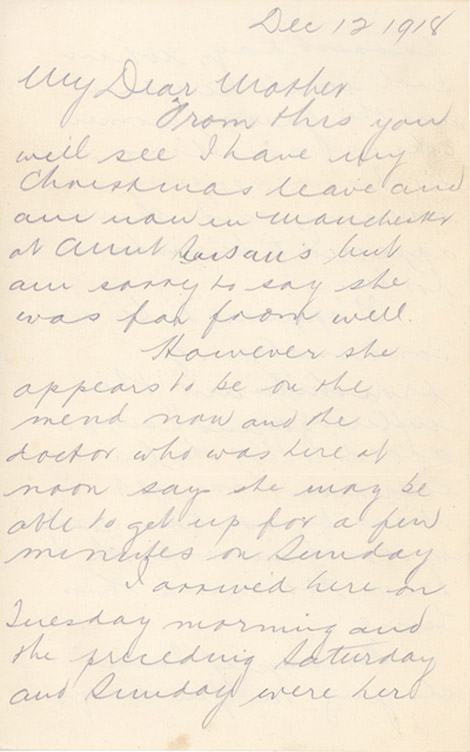 Dec 12 1918
My Dear Mother
From this you
will see I have my
Christmas leave and
am now in Manchester
at Aunt Susan's but
am sorry to say she
was far from well.
However she
appears to be on the
mend now and the
doctor who was here at
noon says she may be
able to get up for a few
minutes on Sunday
I arrived here on
Tuesday morning and
the preceding Saturday
and Sunday were her